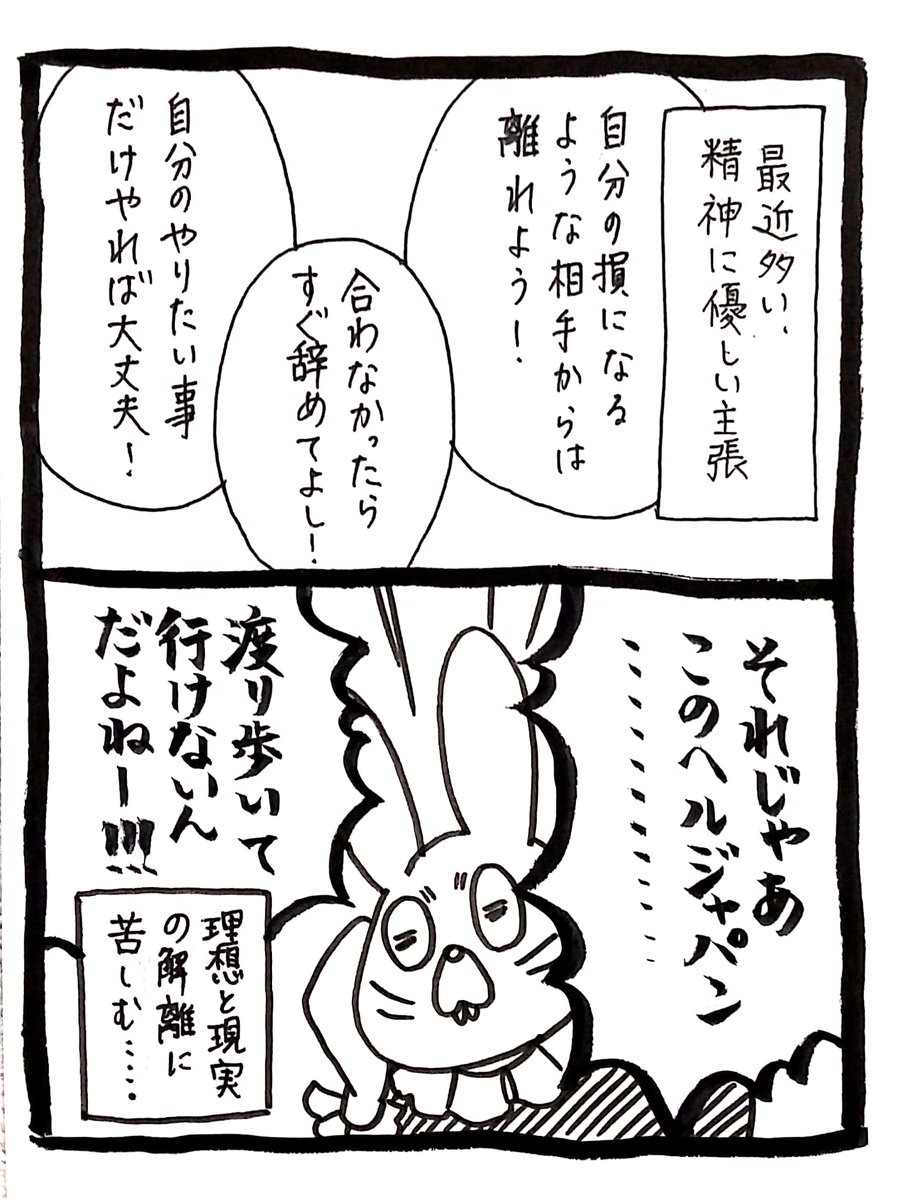 最近多い、
精神に優しい主張
自分の損になる
ような相手からは
離れよう！
合わなかったら
すぐ辞めてよし！
自分のやりたい事
だけやれば大丈夫！
それじゃあ
このヘルジャパン
…………
渡り歩いて
行けないん
だよねー!!!
理想と現実
の解離に
苦しむ……